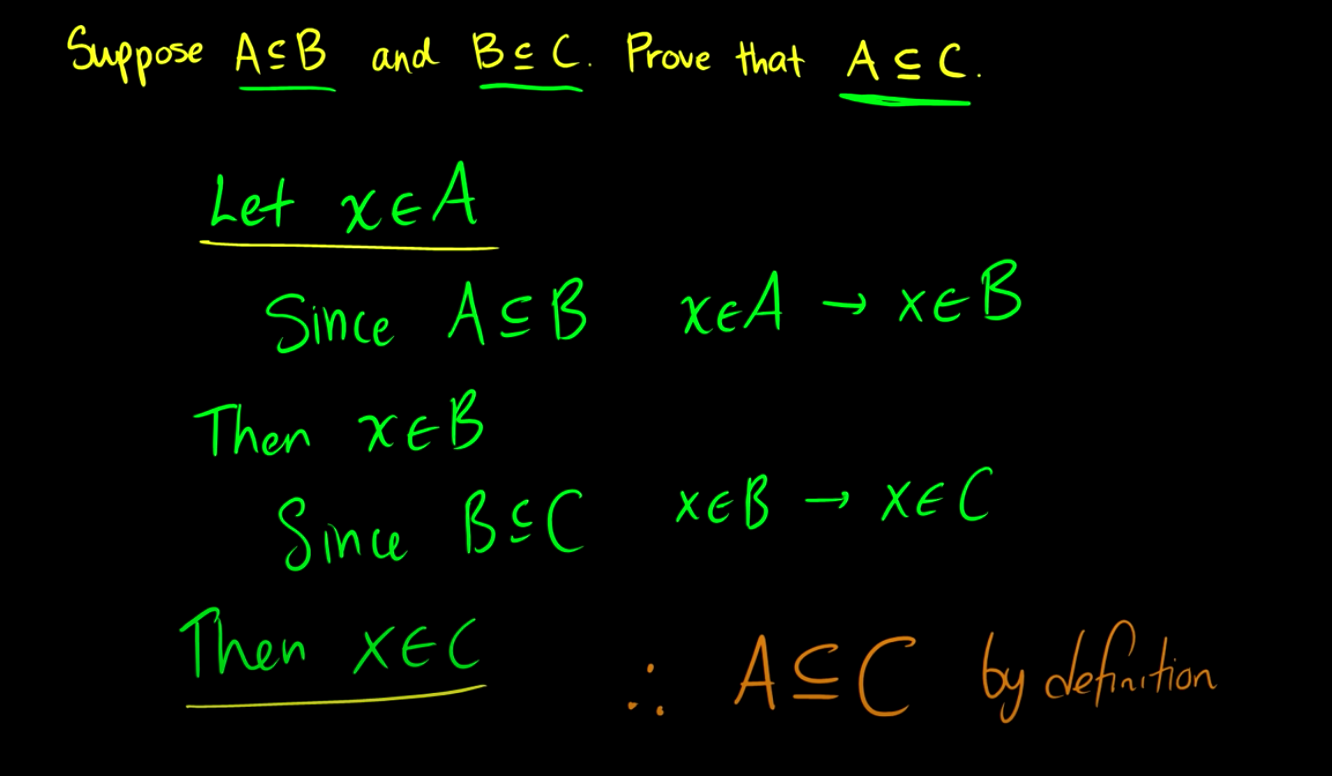 Suppose A ⊆ B and B ⊆ C. Prove that A ⊆ C.
Let x ∈ A
Since A ⊆ B x ∈ A → x ∈ B
Then x ∈ B
Since B ⊆ C x ∈ B → x ∈ C
Then x ∈ C ∴ A ⊆ C by definition